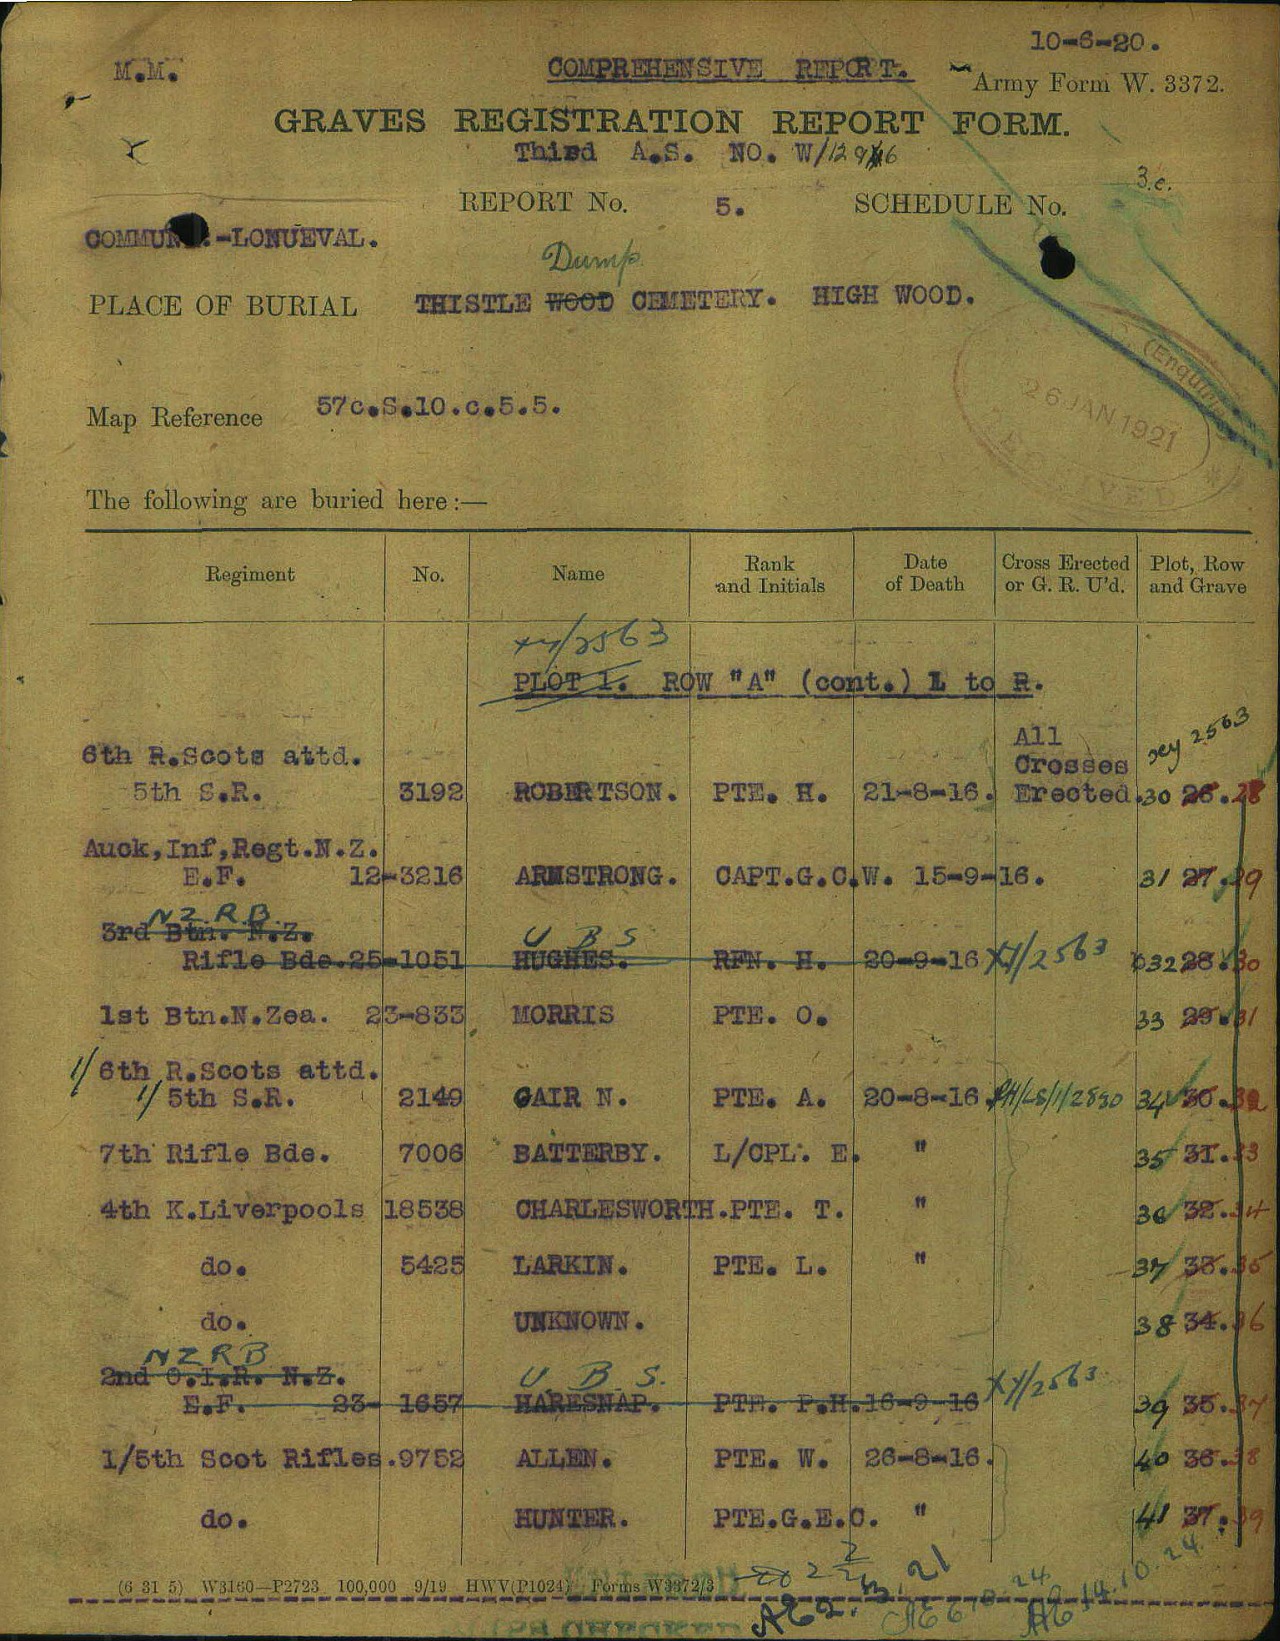 10-6-20.
M.M.
COMPREHENSIVE REPORT.
Army Form W. 3372.
GRAVES REGISTRATION REPORT FORM.
Third A.S. NO. W/129/46
3.c.
REPORT No. 5. SCHEDULE No.
COMMUN.-LONUEVAL.
Dump.
PLACE OF BURIAL THISTLE WOOD CEMETERY. HIGH WOOD.
(Enquiries)
26 JAN 1921
Map Reference 57c.S.10.c.5.5.
The following are buried here:—
Regiment No. Name Rank and Initials Date of Death Cross Erected or G. R. U'd. Plot, Row and Grave
xy/2563
PLOT 1. ROW "A" (cont.) L to R.
All xy 2563
6th R.Scots attd. Crosses
5th S.R. 3192 ROBERTSON. PTE. H. 21-8-16. Erected. 30 26. 28
Auck,Inf,Regt.N.Z.
E.F. 12-3216 ARMSTRONG. CAPT.G.C.W. 15-9-16. 31 27. 29
NZRB
3rd Btn. N.Z. U B S
Rifle Bde.25-1051 HUGHES. RFN. H. 20-9-16 XY/2563 32 28. 30
1st Btn.N.Zea. 23-833 MORRIS PTE. O. 33 29. 31
1/ 6th R.Scots attd.
1/ 5th S.R. 2149 GAIR N. PTE. A. 20-8-16. 34 30. 32
7th Rifle Bde. 7006 BATTERBY. L/CPL. E. " 35 31. 33
4th K.Liverpools 18538 CHARLESWORTH. PTE. T. " 36 32. 34
do. 5425 LARKIN. PTE. L. " 37 33. 35
do. UNKNOWN. 38 34. 36
NZRB
2nd O.I.R. N.Z. U B S.
E.F. 23- 1657 HARESNAP. PTE. P.H. 16-9-16 XY/2563 39 35. 37
1/5th Scot Rifles. 9752 ALLEN. PTE. W. 26-8-16. 40 36. 38
do. HUNTER. PTE.G.E.C. " 41 37. 39
(6 31 5) W3160—P2723 100,000 9/19 HWV(P1024) Forms W3372/3